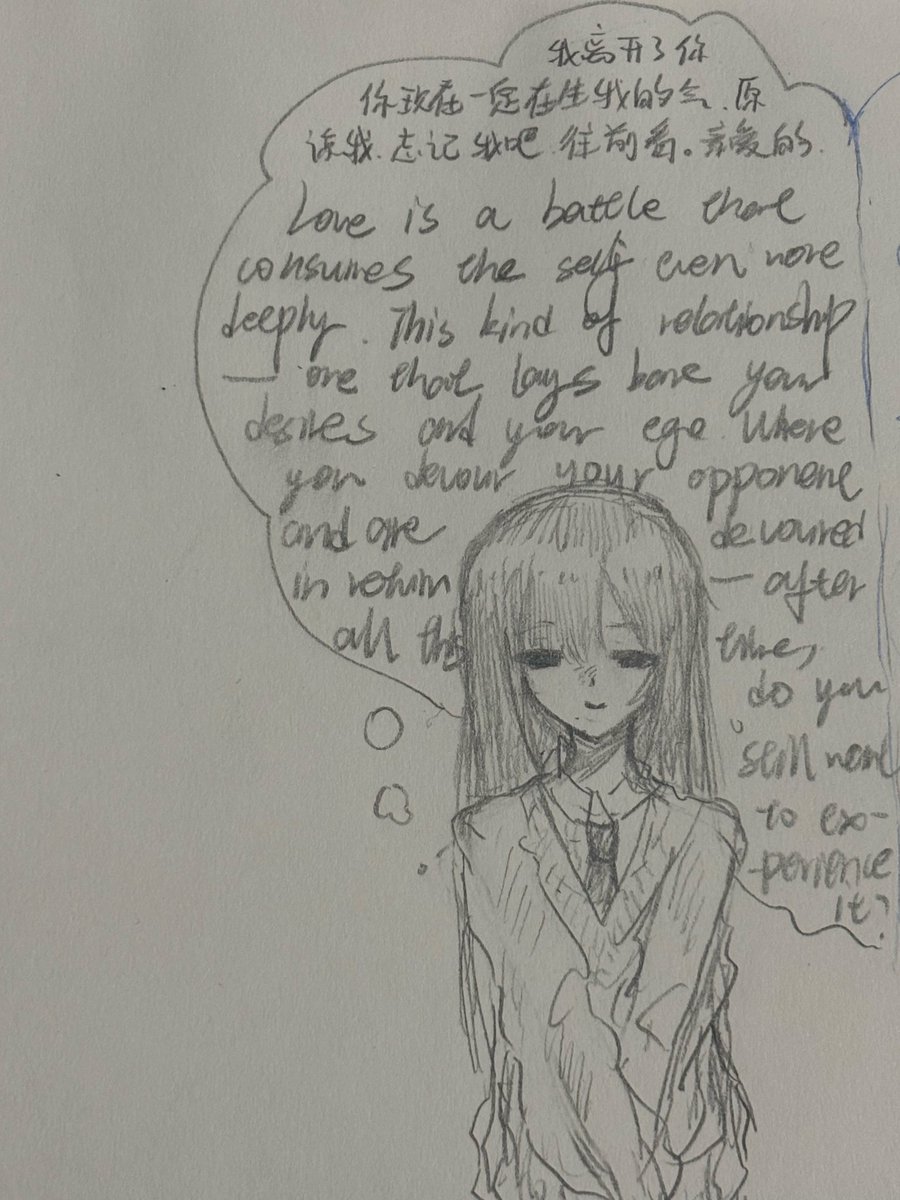 我离开了你
你现在一定在生我的气.原
谅我.忘记我吧.往前看。亲爱的.
Love is a battle that
consumes the self even more
deeply. This kind of relationship
— one that lays bare your
desires and your ego. Where
you devour your opponent
and are devoured
in return — after
all this time,
do you
still want
to ex-
-perience
it?